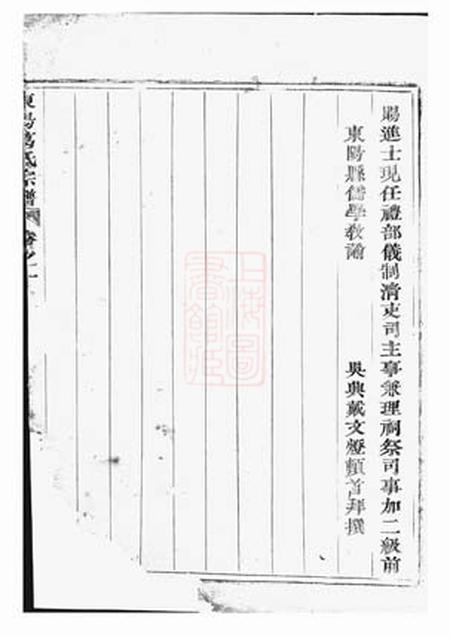 賜進士現任禮部儀制清吏司主事兼理祠祭司事加二級前
東陽縣儒學教諭
吳興戴文燈頓首拜撰
東陽葛氏宗譜
卷之一
上海圖書館藏